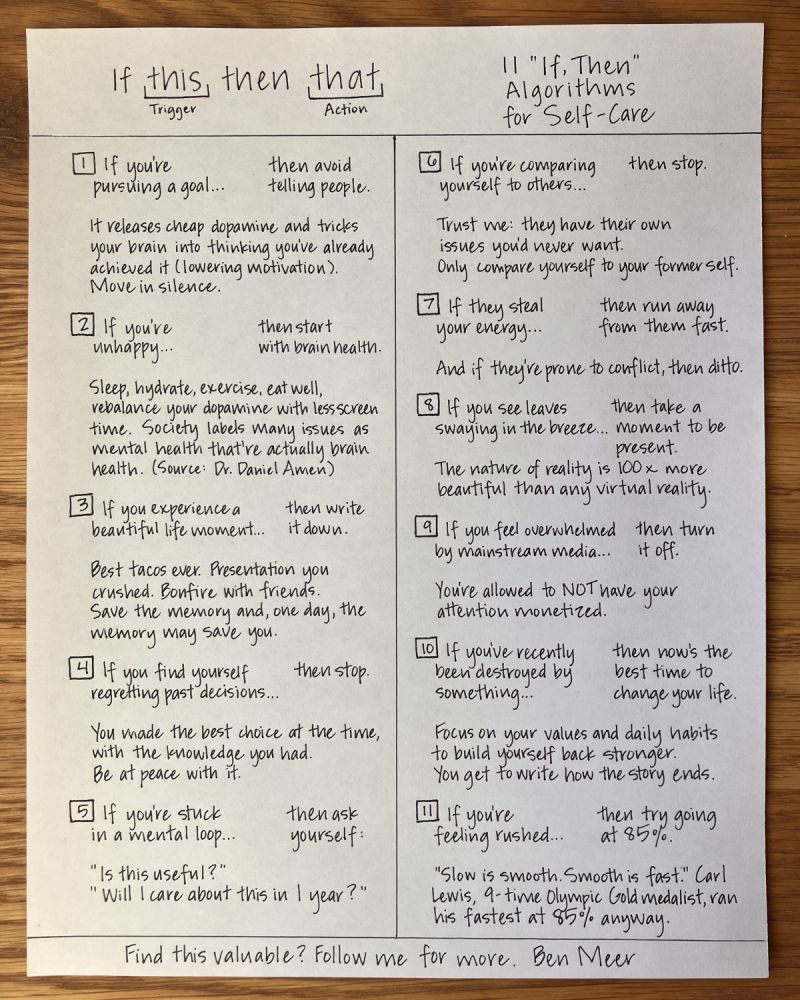 If this, then that
Trigger Action
11 "If, Then"
Algorithms
for Self-Care
1 If you're then avoid
pursuing a goal... telling people.
It releases cheap dopamine and tricks
your brain into thinking you've already
achieved it (lowering motivation).
Move in silence.
2 If you're then start
unhappy... with brain health.
Sleep, hydrate, exercise, eat well,
rebalance your dopamine with less screen
time. Society labels many issues as
mental health that're actually brain
health. (Source: Dr. Daniel Amen)
3 If you experience a then write
beautiful life moment... it down.
Best tacos ever. Presentation you
crushed. Bonfire with friends.
Save the memory and, one day, the
memory may save you.
4 If you find yourself then stop.
regretting past decisions...
You made the best choice at the time,
with the knowledge you had.
Be at peace with it.
5 If you're stuck then ask
in a mental loop... yourself:
"Is this useful?"
"Will I care about this in 1 year?"
6 If you're comparing then stop.
yourself to others...
Trust me: they have their own
issues you'd never want.
Only compare yourself to your former self.
7 If they steal then run away
your energy... from them fast.
And if they're prone to conflict, then ditto.
8 If you see leaves then take a
swaying in the breeze... moment to be
present.
The nature of reality is 100x more
beautiful than any virtual reality.
9 If you feel overwhelmed then turn
by mainstream media... it off.
You're allowed to NOT have your
attention monetized.
10 If you've recently then now's the
been destroyed by best time to
something... change your life.
Focus on your values and daily habits
to build yourself back stronger.
You get to write how the story ends.
11 If you're then try going
feeling rushed... at 85%.
"Slow is smooth. Smooth is fast." Carl
Lewis, 9-time Olympic Gold medalist, ran
his fastest at 85% anyway.
Find this valuable? Follow me for more. Ben Meer